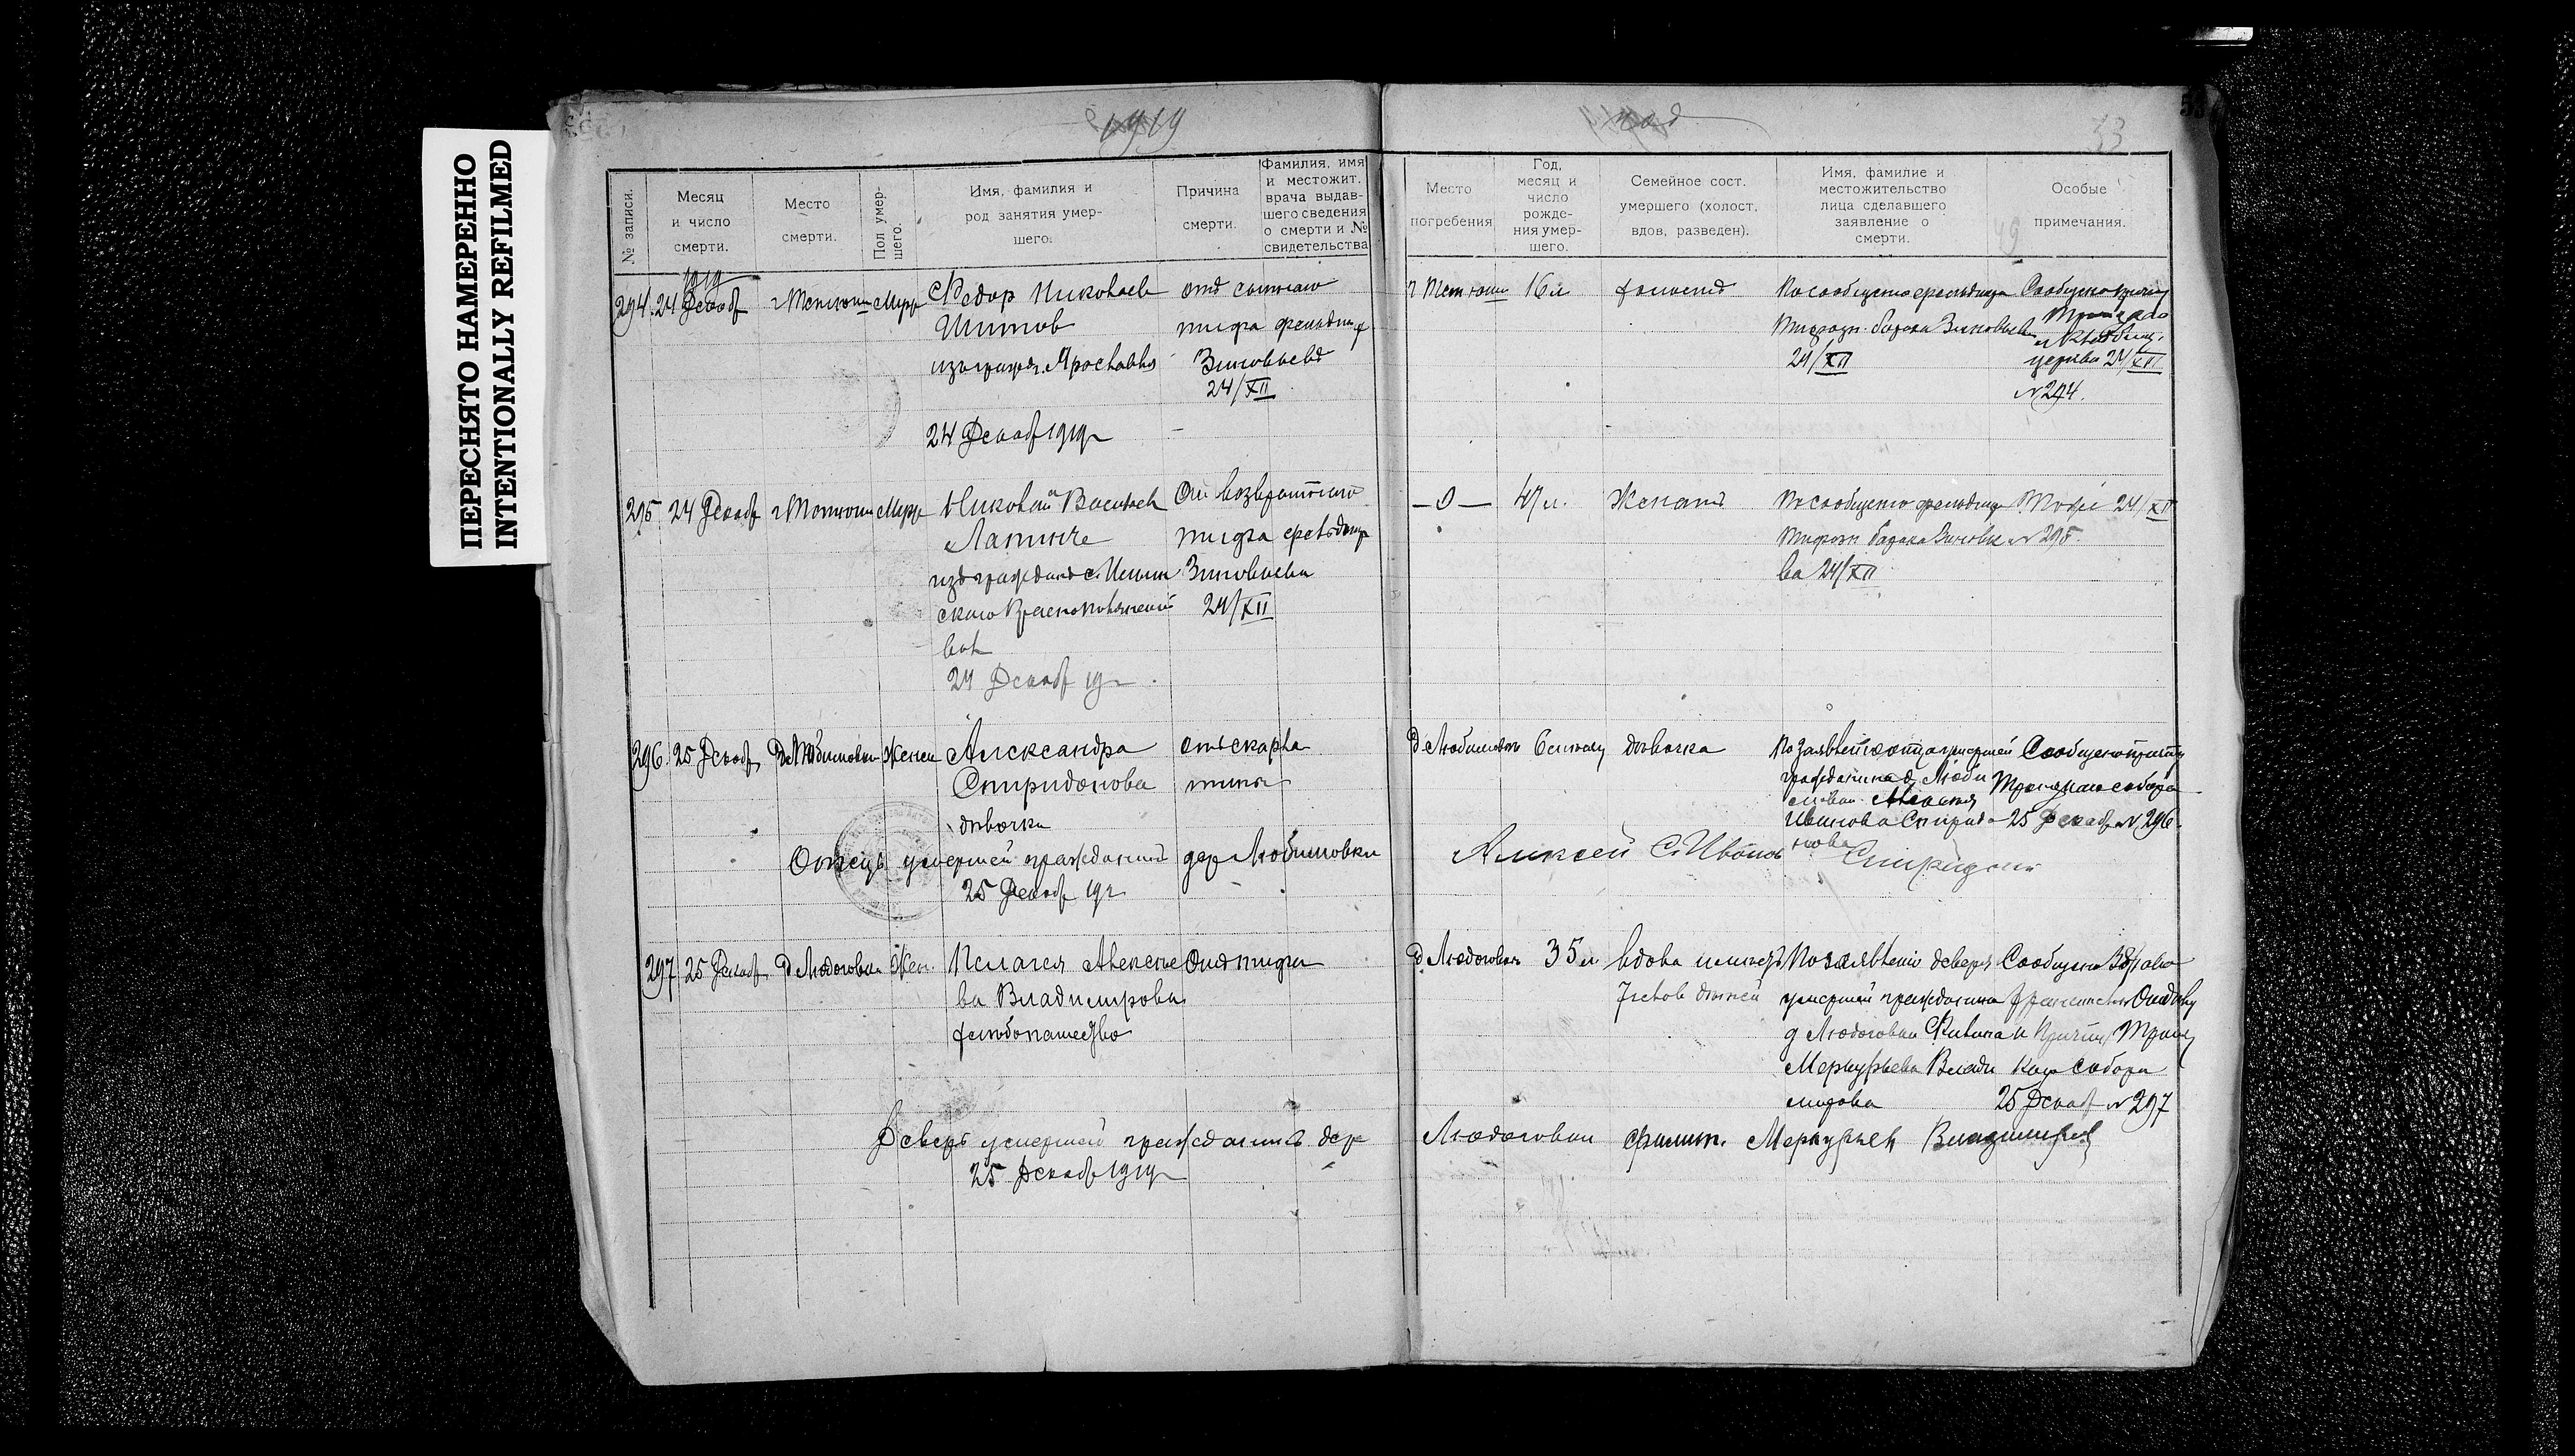 ПЕРЕСНЯТО НАМЕРЕННО
INTENTIONALLY REFILMED
1919
год
53
№ записи.
Месяц
и число
смерти.
Место
смерти.
Пол умер-
шего.
Имя, фамилия и
род занятия умер-
шего.
Причина
смерти.
Фамилия, имя
и местожит.
врача выдав-
шего сведения
о смерти и №
свидетельства
Место
погребения
Год,
месяц и
число
рожде-
ния умер-
шего.
Семейное сост.
умершего (холост,
вдов, разведен).
Имя, фамилие и
местожительство
лица сделавшего
заявление о
смерти.
Особые
примечания.
1919
294. 24 Декаб г Тетюши Муж Федор Николаев
Шитов
Ярославля
24 Декаб 1919 г
от сыпного
тифа фельдш
Зиновьев
24/XII
г Тетюши 16 л холост По сообщению фельдшера
барака Зиновьева
24/XII
церкви 24/XII
№ 294.
295 24 Декаб г Тетюши Муж Николай Васильев
Лапин
из граждан с.
вол
24 Декаб 19 г
От возвратного
тифа фельдшер
Зиновьева
24/XII
— 0 — 47 л. Женат По сообщению фельдшера
барака Зиновье № 295.
ва 24/XII
24/XII
296. 25 Декаб Д Любимовка Женск Александра
Спиридонова
девочка
от скарла
тины
Отец умершей гражданин дер Любимовки
25 Декаб 19 г
д Любимовка девочка По заявлению отца умершей
гражданина д. Люби
мовки Алексея
Иванова Спиридо
нова
Сообщено
собора
25 Декаб № 296.
Алексей С. Иванов Спиридонов
297 25 Декаб Д Людоговка Жен. Пелагея Алексее
ва Владимирова
хлебопашество
От тифа
д. Людоговка 35 л вдова
7 детей
По заявлению деверя
умершей гражданина
д Людоговки Филипа
Меркурьева Влади
мирова
Сообщено
собора
25 Декаб № 297
Деверь умершей гражданин дер
25 Декаб 1919 г
Людоговки Филип. Меркурьев Владимиров